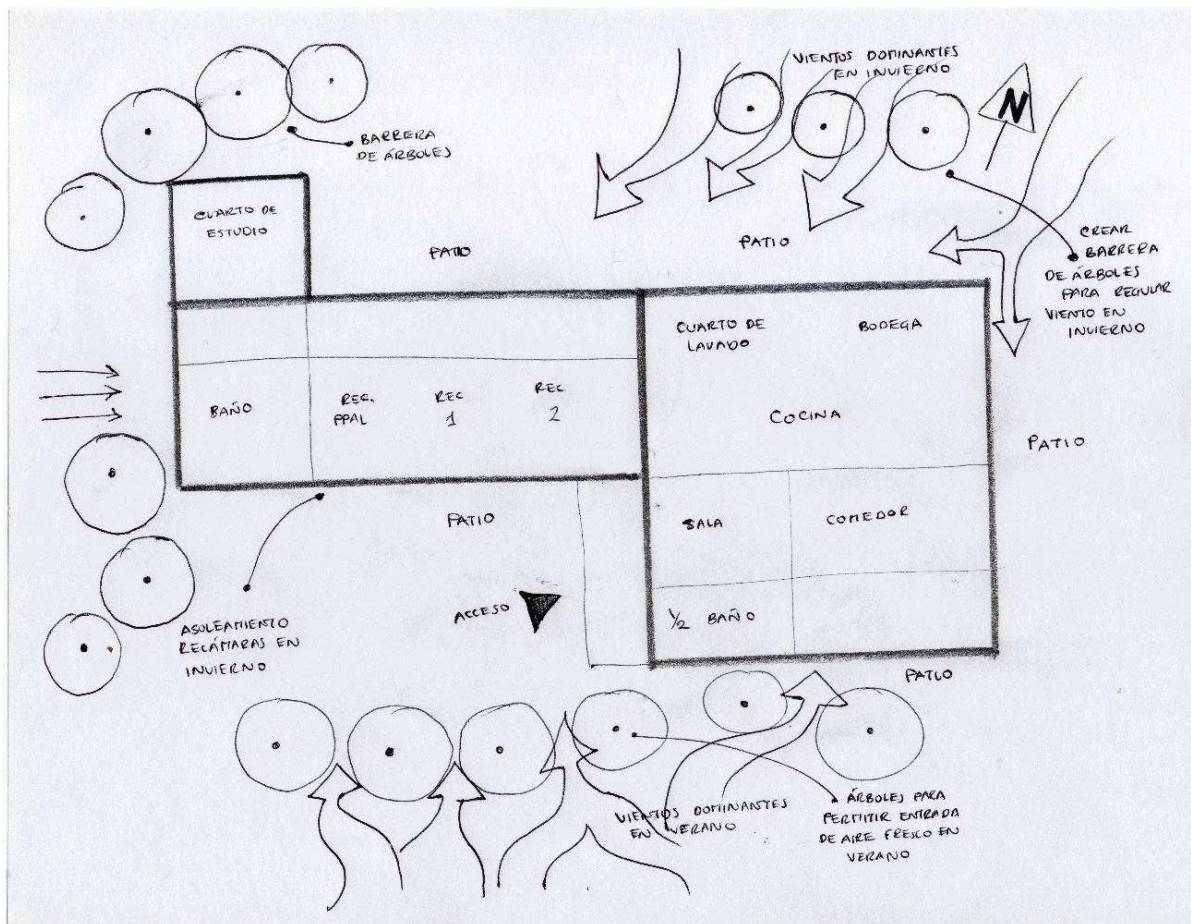 VIENTOS DOMINANTES
EN INVIERNO
N
BARRERA
DE ÁRBOLES
CUARTO DE
ESTUDIO
PATIO
PATIO
CREAR
BARRERA
DE ÁRBOLES
PARA REGULAR
VIENTO EN
INVIERNO
CUARTO DE
LAVADO
BODEGA
BAÑO
REC.
PPAL
REC
1
REC
2
COCINA
PATIO
PATIO
SALA
COMEDOR
ACCESO
1/2 BAÑO
ASOLEAMIENTO
RECÁMARAS EN
INVIERNO
PATIO
VIENTOS DOMINANTES
EN VERANO
ÁRBOLES PARA
PERMITIR ENTRADA
DE AIRE FRESCO EN
VERANO